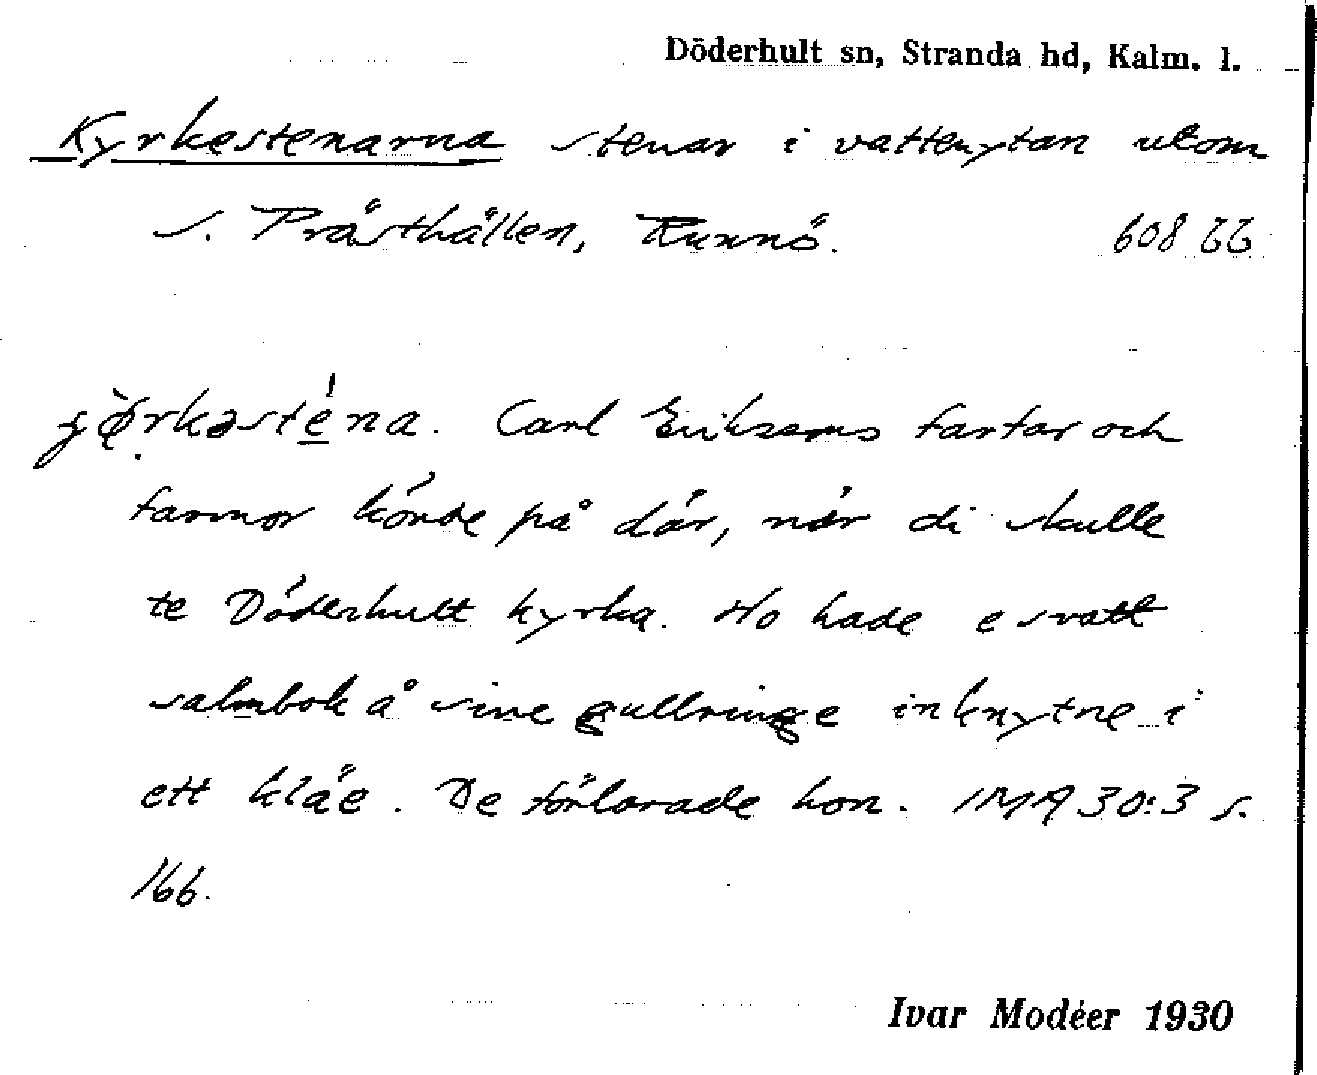 Döderhult sn, Stranda hd, Kalm. l.
Kyrkestenarna stenar i vattenytan utom
s. Prästhällen, Runnö. 608 66
jö̀rkəsté̱na. Carl Eriksons farfar och
farmor körde på där, när di skulle
te Döderhult kyrka. Ho hade e svatt
salmbok å sine gullringe inknytne i
ett kläe. De förlorade hon. IMA 30:3 s.
166.
Ivar Modéer 1930